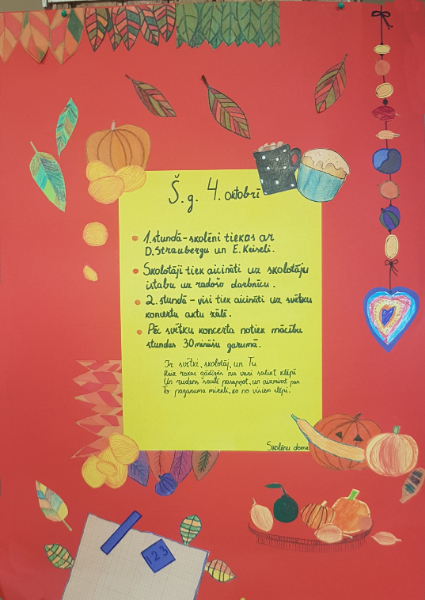 Š.g. 4. oktobrī
1. stundā - skolēni tiekas ar
D. Straubergu un E. Keiseli.
Skolotāji tiek aicināti uz skolotāju
istabu uz radošo darbnīcu.
2. stundā - visi tiek aicināti uz svētku
koncertu aktu zālē.
Pēc svētku koncerta notiek mācību
stundas 30 minūšu garumā.
Ir svētki, skolotāj, un Tu
Un rudens saulē pasapņot, un aizmirst par
to pagurumu mirkli, ko no visiem slēpi.
Skolēnu dome
123